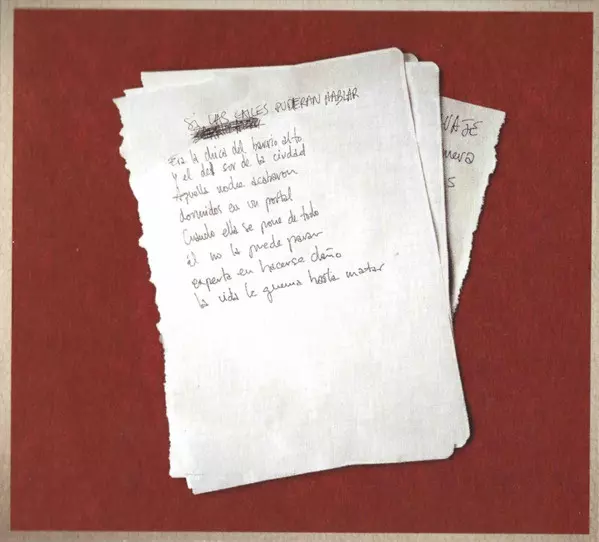 Si LAS CALLES PUDIERAN HABLAR
Era la chica del barrio alto
y él del sur de la ciudad
Aquella noche acabaron
dormidos en un portal
Cuando ella se pone de todo
él no la puede parar
experta en hacerse daño
la vida le quema hasta matar
VAJE
mera
s